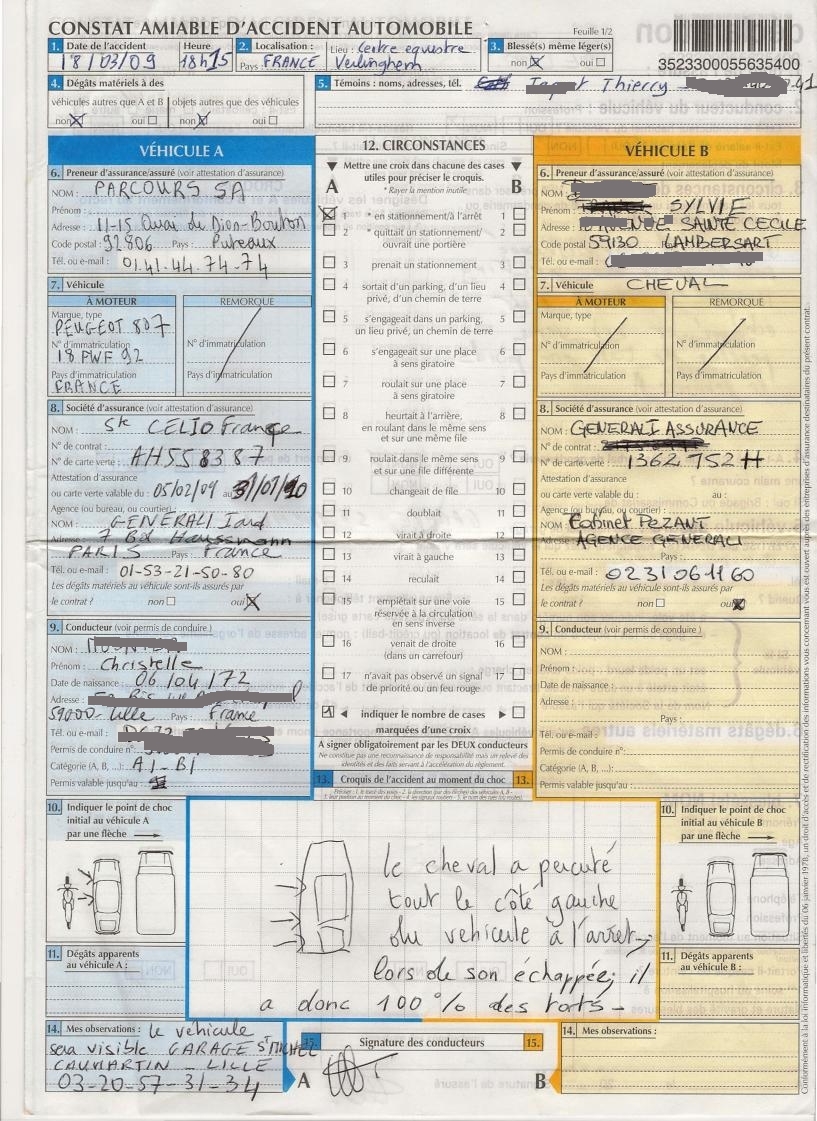 CONSTAT AMIABLE D'ACCIDENT AUTOMOBILE
Feuille 1/2
1. Date de l'accident Heure
18/03/09 18h15
2. Localisation : Lieu : Centre equestre
Pays : FRANCE Verlinghem
3. Blessé(s) même léger(s)
non oui
3523300055635400
4. Dégâts matériels à des
véhicules autres que A et B objets autres que des véhicules
non oui non oui
5. Témoins : noms, adresses, tél.
Thierry
VÉHICULE A
6. Preneur d'assurance/assuré (voir attestation d'assurance)
NOM : PARCOURS SA
Prénom :
Adresse : 11-15 Quai de Dion-Bouton
Code postal : 92806 Pays : Puteaux
Tél. ou e-mail : 01.41.44.74-74
7. Véhicule
À MOTEUR REMORQUE
Marque, type
PEUGEOT 807
N° d'immatriculation N° d'immatriculation
18 PWF 92
Pays d'immatriculation Pays d'immatriculation
FRANCE
8. Société d'assurance (voir attestation d'assurance)
NOM : Sté CELIO France
N° de contrat :
N° de carte verte : AH558387
Attestation d'assurance
ou carte verte valable du : 05/02/09 au 31/01/10
Agence (ou bureau, ou courtier) :
NOM : GENERALI Iard
Adresse : 7 Bld Haussmann
PARIS Pays : France
Tél. ou e-mail : 01-53-21-50-80
Les dégâts matériels au véhicule sont-ils assurés par
le contrat ? non oui
9. Conducteur (voir permis de conduire)
NOM :
Prénom : Christelle
Date de naissance : 06/04/72
Adresse :
59000 - Lille Pays : France
Tél. ou e-mail :
Permis de conduire n° :
Catégorie (A, B, ...) : A1-B1
Permis valable jusqu'au :
12. CIRCONSTANCES
Mettre une croix dans chacune des cases
A utiles pour préciser le croquis. B
* Rayer la mention inutile
1 * en stationnement/à l'arrêt 1
2 * quittait un stationnement/ 2
ouvrait une portière
3 prenait un stationnement 3
4 sortait d'un parking, d'un lieu 4
privé, d'un chemin de terre
5 s'engageait dans un parking, 5
un lieu privé, un chemin de terre
6 s'engageait sur une place 6
à sens giratoire
7 roulait sur une place 7
à sens giratoire
8 heurtait à l'arrière, 8
en roulant dans le même sens
et sur une même file
9 roulait dans le même sens 9
et sur une file différente
10 changeait de file 10
11 doublait 11
12 virait à droite 12
13 virait à gauche 13
14 reculait 14
15 empiétait sur une voie 15
réservée à la circulation
en sens inverse
16 venait de droite 16
(dans un carrefour)
17 n'avait pas observé un signal 17
de priorité ou un feu rouge
1 indiquer le nombre de cases
marquées d'une croix
A signer obligatoirement par les DEUX conducteurs
Ne constitue pas une reconnaissance de responsabilité mais un relevé des
identités et des faits servant à l'accélération du règlement.
VÉHICULE B
6. Preneur d'assurance/assuré (voir attestation d'assurance)
NOM :
Prénom : SYLVIE
Adresse : AVENUE SAINTE CECILE
Code postal 59130 LAMBERSART
Tél. ou e-mail :
7. Véhicule CHEVAL
À MOTEUR REMORQUE
Marque, type
N° d'immatriculation N° d'immatriculation
Pays d'immatriculation Pays d'immatriculation
8. Société d'assurance (voir attestation d'assurance)
NOM : GENERALI ASSURANCE
N° de contrat :
N° de carte verte : 1362 752 H
Attestation d'assurance
ou carte verte valable du : au :
Agence (ou bureau, ou courtier) :
NOM : Cabinet PEZANT
Adresse : AGENCE GENERALI
Pays :
Tél. ou e-mail : 0231061160
Les dégâts matériels au véhicule sont-ils assurés par
le contrat ? non oui
9. Conducteur (voir permis de conduire)
NOM :
Prénom :
Date de naissance :
Adresse :
Pays :
Tél. ou e-mail :
Permis de conduire n° :
Catégorie (A, B, ...) :
Permis valable jusqu'au :
13. Croquis de l'accident au moment du choc 13.
10. Indiquer le point de choc
initial au véhicule A
par une flèche
le cheval a percuté
tout le côté gauche
du vehicule à l'arret
lors de son échappée; il
a donc 100 % des torts -
10. Indiquer le point de choc
initial au véhicule B
par une flèche
11. Dégâts apparents
au véhicule A :
11. Dégâts apparents
au véhicule B :
14. Mes observations : le véhicule
sera visible GARAGE St MICHEL
CAUMARTIN - LILLE
03-20-57-31-34
15. Signature des conducteurs 15.
A B
14. Mes observations :
Conformément à la loi informatique et libertés du 06 janvier 1978, un droit d'accès et de rectification des informations vous concernant est ouvert auprès des entreprises d'assurance destinataires du présent contrat.